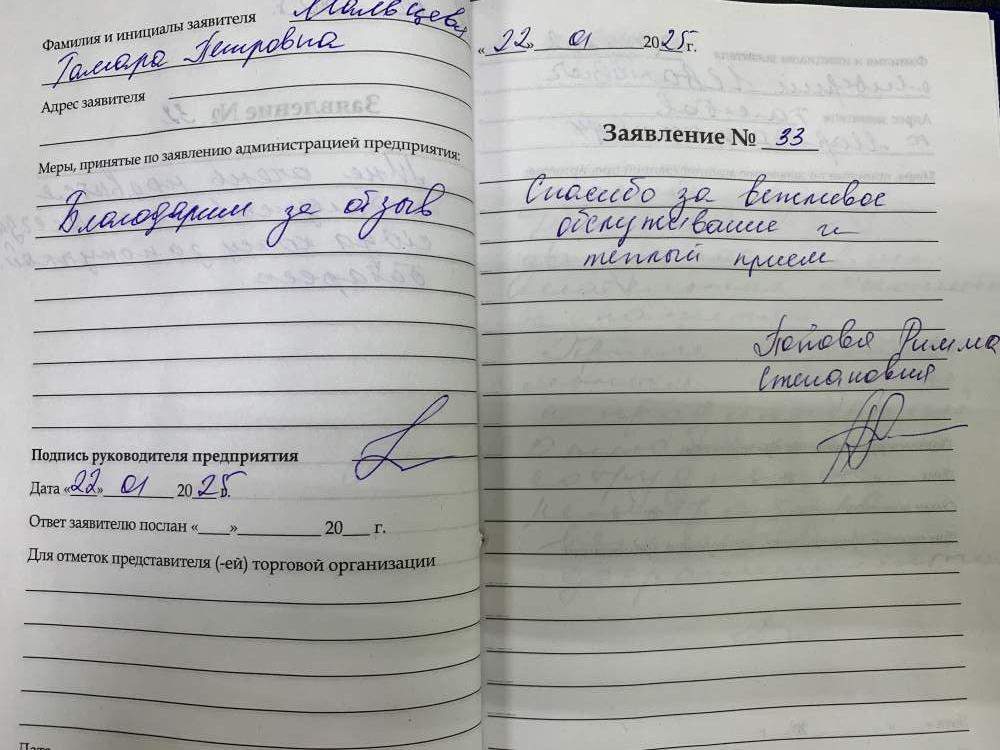 Фамилия и инициалы заявителя Мальцева
Тамара Петровна
Адрес заявителя
Меры, принятые по заявлению администрацией предприятия:
Благодарим за отзыв
Подпись руководителя предприятия
Дата «22» 01 2025г.
Ответ заявителю послан «___» ________ 20___ г.
Для отметок представителя (-ей) торговой организации
Дата
«22» 01 2025г.
Заявление № 33
Спасибо за вежливое
обслуживание и
тёплый прием
Попова Римма
Степановна